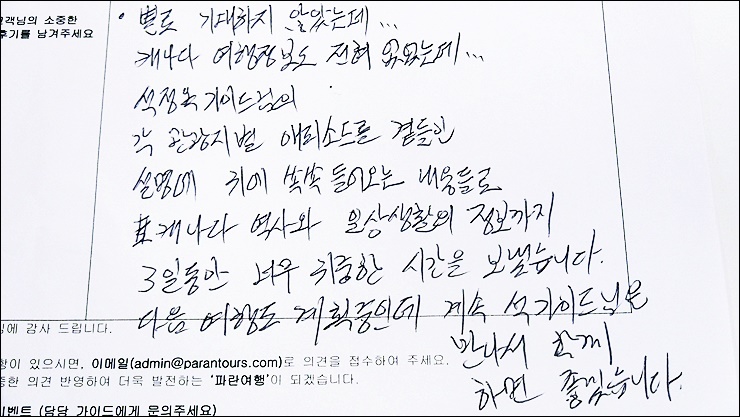 고객님의 소중한
후기를 남겨주세요
· 별로 기대하지 않았는데...
캐나다 여행정보도 전혀 없었는데...
석정옥 가이드님의
각 관광지별 에피소드를 곁들인
설명에 귀에 쏙쏙 들어오는 내용들로
캐나다 역사와 일상생활의 정보까지
3일동안 너무 귀중한 시간을 보냈습니다.
다음 여행도 계획중인데 계속 석가이드님을
만나서 함께
하면 좋겠습니다.
에 감사 드립니다.
이 있으시면, 이메일(admin@parantours.com)로 의견을 접수하여 주세요.
중한 의견 반영하여 더욱 발전하는 '파란여행'이 되겠습니다.
벤트 (담당 가이드에게 문의주세요)